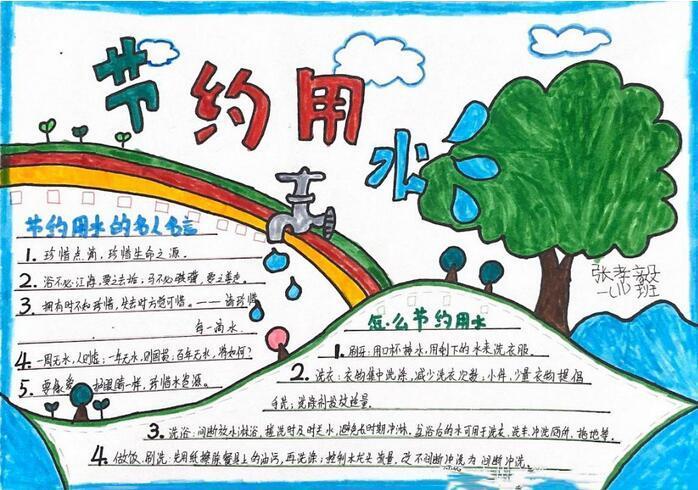 节约用水
张孝毅
一(1)班
节约用水的名人名言
1. 珍惜点滴，珍惜生命之源。
2. 浴不必江海，要之去垢；马不必骐骥，要之善走。
3. 拥有时不知珍惜，失去时方觉可惜。——请珍惜
每一滴水。
4. 一周无水，人则危；一年无水，则国危；百年无水，将如何？
5. 眼睛一样，珍惜水资源。
怎么节约用水
1. 刷牙：用口杯接水，用剩下的水来洗衣服。
2. 洗衣：衣物集中洗涤，减少洗衣次数；小件、少量衣物提倡
手洗；洗涤剂投放适量。
3. 洗浴：间断放水淋浴，搓洗时及时关水，避免长时期冲淋，盆浴后的水可用于洗衣、洗车、冲洗厕所、拖地等。
4. 做饭、刷洗：先用纸擦除餐具上的油污，再洗涤；控制水龙头流量，改不间断冲洗为间断冲洗。